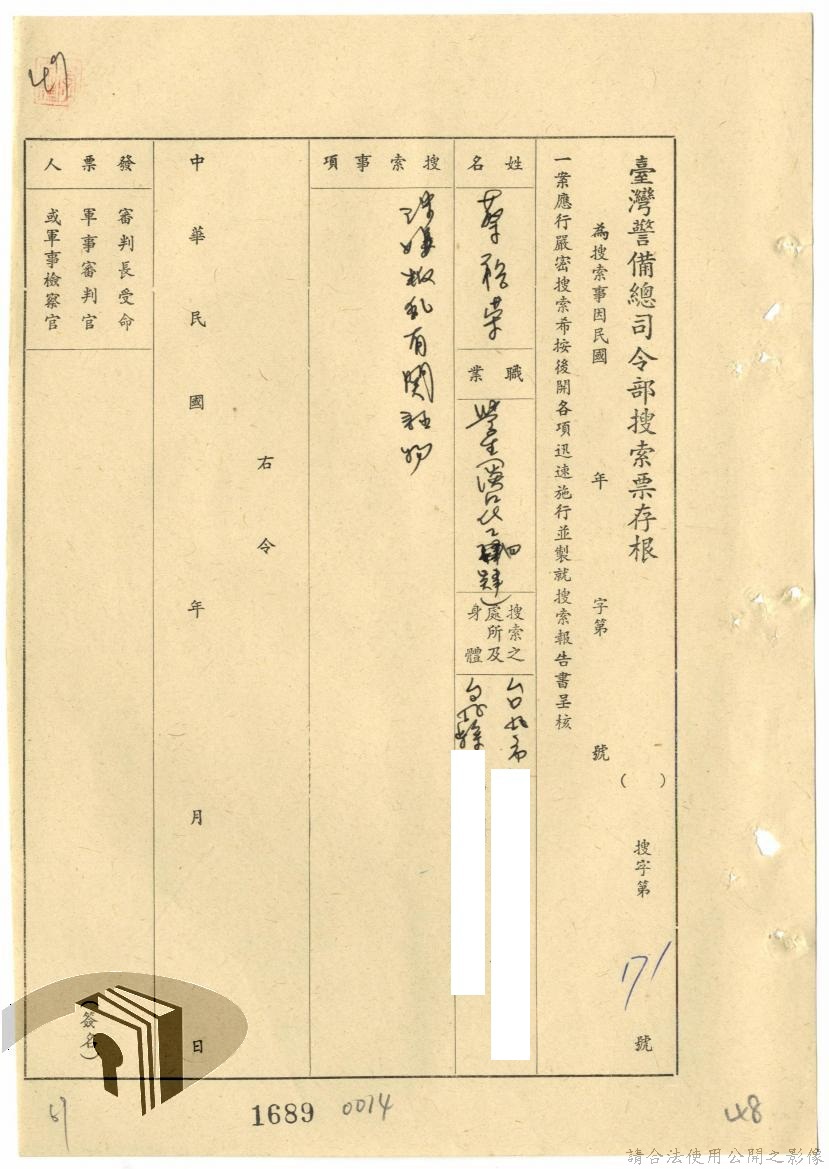 49
臺灣警備總司令部搜索票存根
( ) 搜字第 171 號
為搜索事因民國 年 字第 號
一案應行嚴密搜索希按後開各項迅速施行並製就搜索報告書呈核
姓名
蔡裕榮
職業
學生(淡江化工四肄)
搜索之處所及身體
台北市
台北縣
搜索事項
涉嫌叛乱有関証物
右令
中華民國 年 月 日
發票人
審判長受命
軍事審判官
或軍事檢察官
(簽名)
1689
0014
48
請合法使用公開之影像